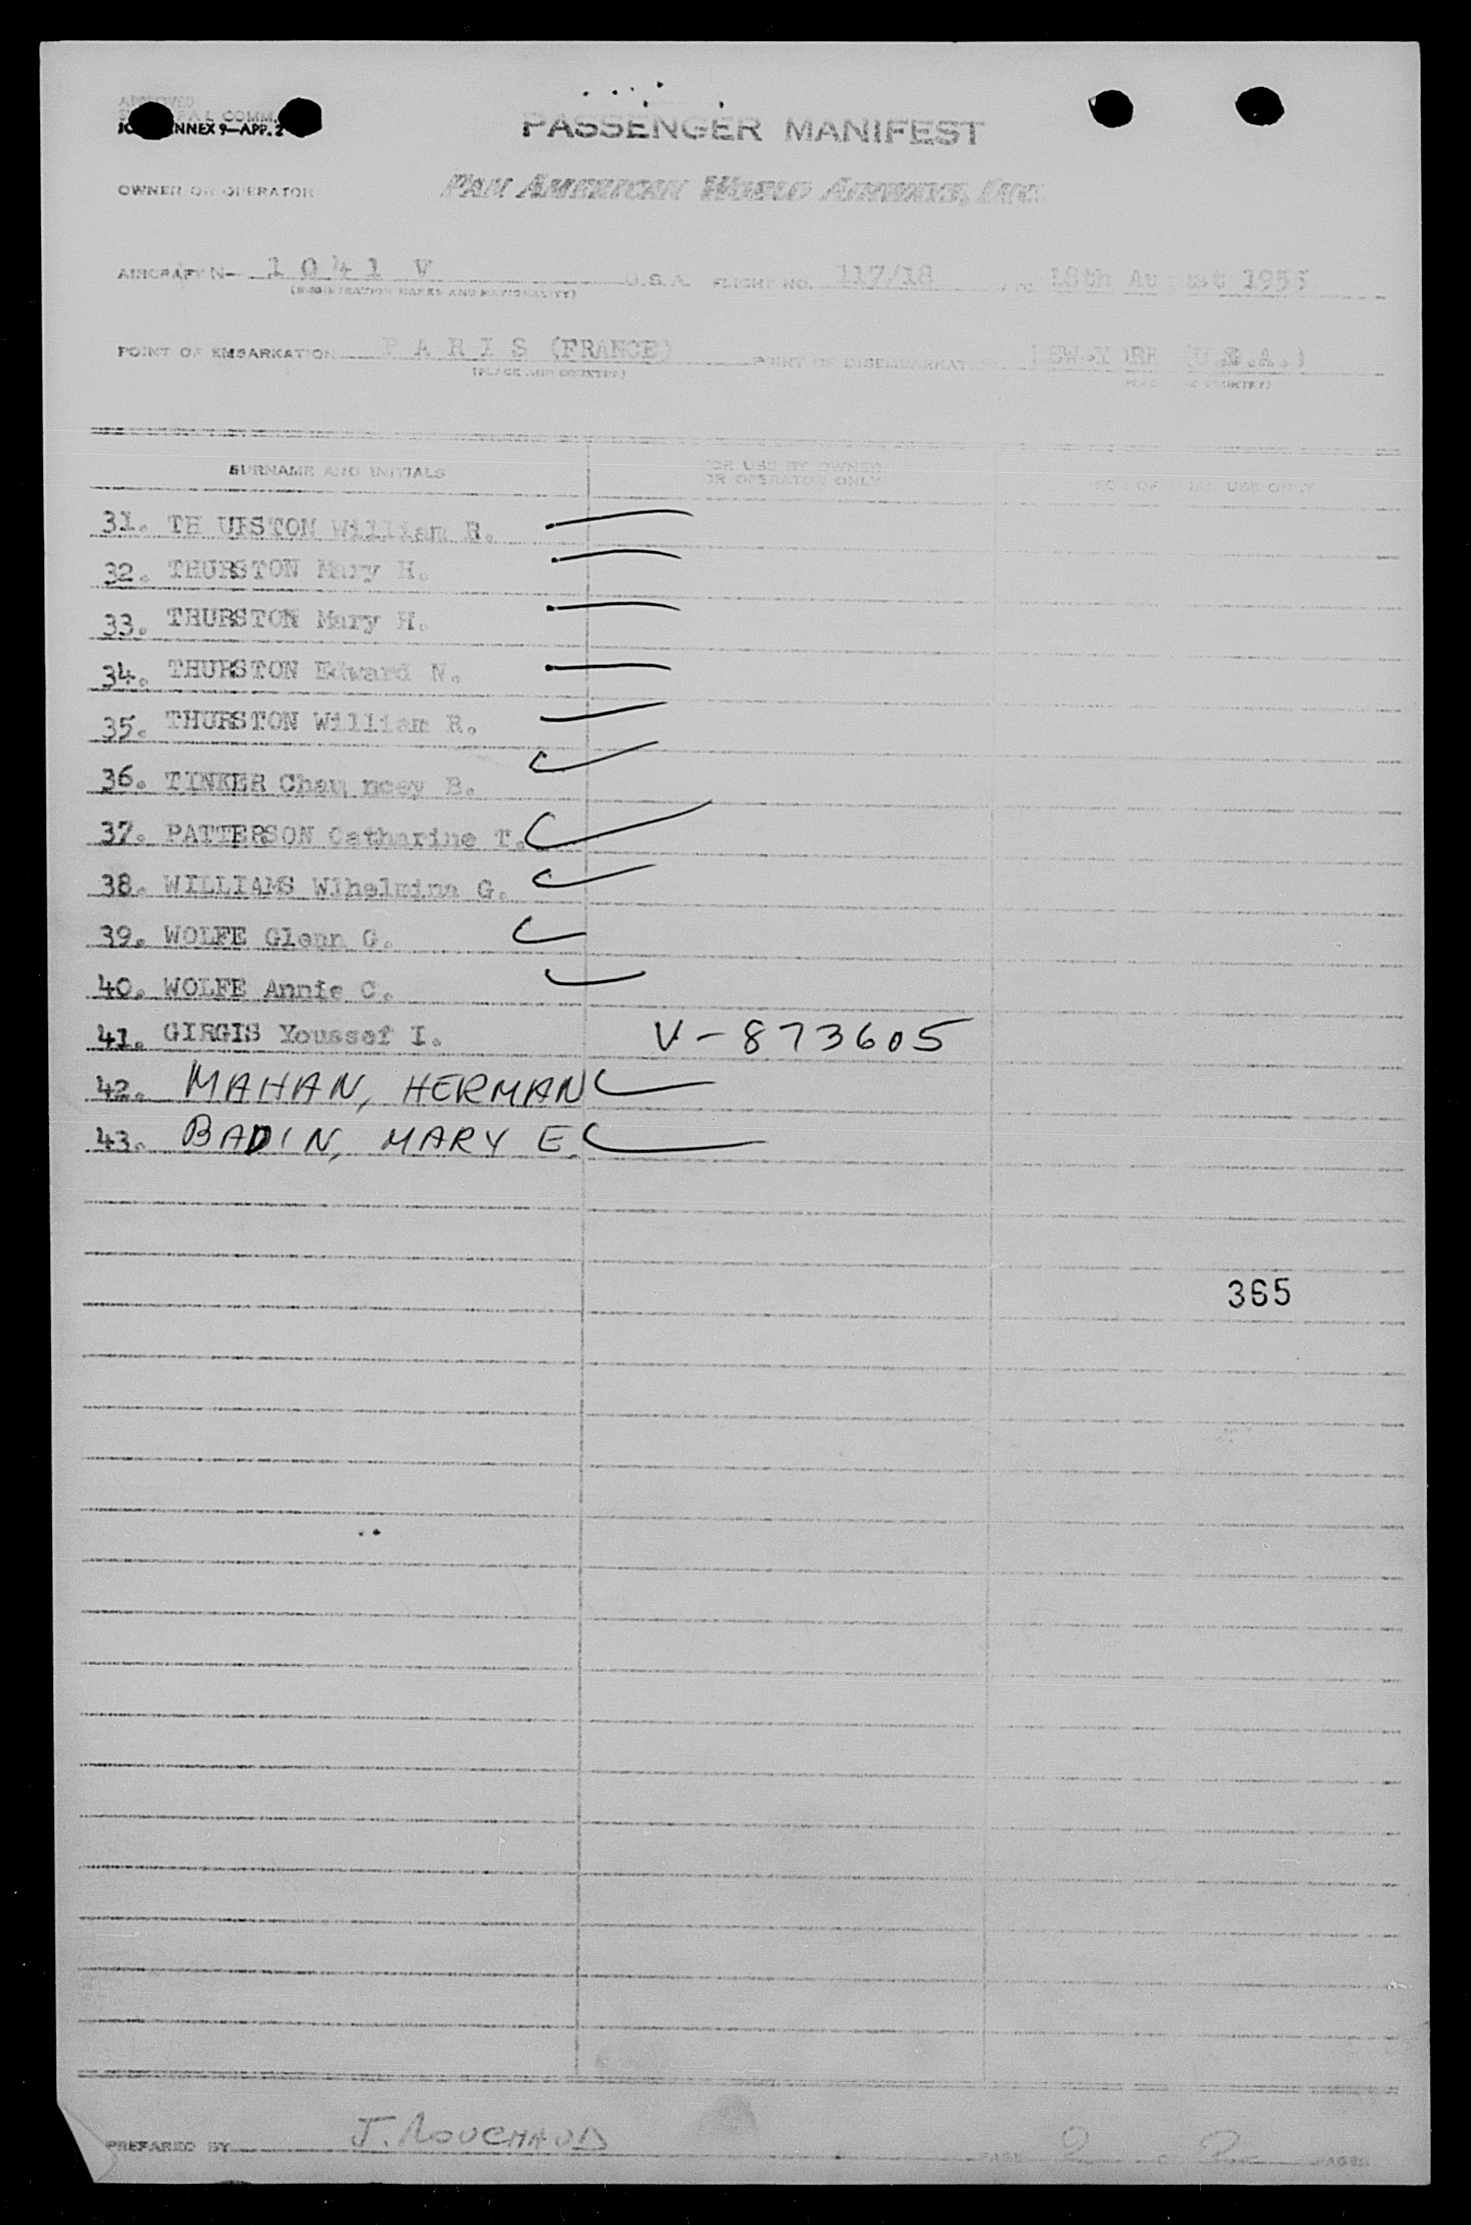 APPROVED
COMM.
ANNEX 9—APP. 2
PASSENGER MANIFEST
OWNER OR OPERATOR PAN AMERICAN WORLD AIRWAYS, INC.
AIRCRAFT N- 1041 V U.S.A. FLIGHT NO. 117/18 18th August 1955
(REGISTRATION MARKS AND NATIONALITY)
POINT OF EMBARKATION PARIS (FRANCE) POINT OF DISEMBARKATION NEW-YORK (U.S.A.)
(PLACE AND COUNTRY) (PLACE AND COUNTRY)
SURNAME AND INITIALS FOR USE BY OWNER OR OPERATOR ONLY FOR OFFICIAL USE ONLY
31. TH URSTON William R.
32. THURSTON Mary H.
33. THURSTON Mary H.
34. THURSTON Edward N.
35. THURSTON William R.
36. TINKER Chau ncey B.
37. PATTERSON Catharine T.
38. WILLIAMS Wlhelmina G.
39. WOLFE Glenn G.
40. WOLFE Annie C.
41. GIRGIS Youssef I. V-873605
42. MAHAN, HERMAN
43. BADIN, MARY E.
365
PREPARED BY J. ROUCHAUD PAGE 2 OF 2 PAGES